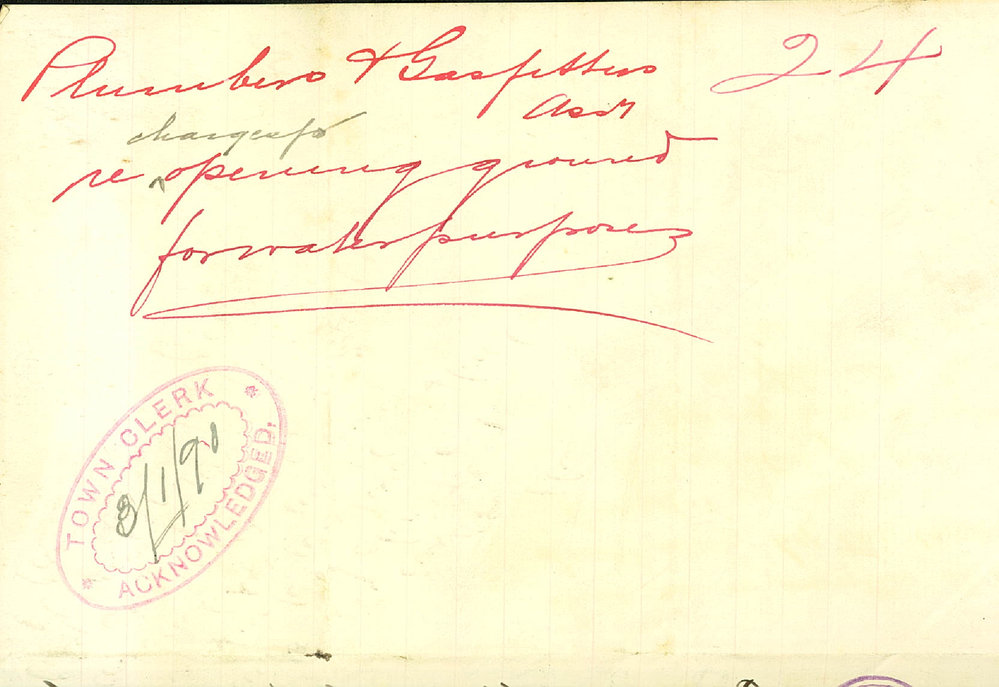 Plumbers & Gasfitters 24
Assn
charges for
re ^ opening ground
for water purposes
TOWN CLERK
8/1/90
ACKNOWLEDGED.